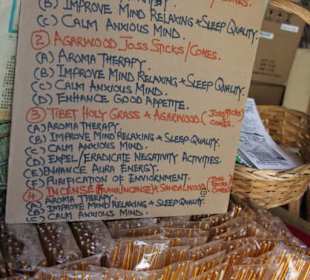 (B) IMPROVE MIND RELAXING & SLEEP QUALITY.
(C) CALM ANXIOUS MIND.
② AGARWOOD JOSS STICKS/CONES.
(A) AROMA THERAPY.
(B) IMPROVE MIND RELAXING & SLEEP QUALITY.
(C) CALM ANXIOUS MIND.
(D) ENHANCE GOOD APPETITE.
③ TIBET HOLY GRASS & AGARWOOD (JOSSSTICKS/CONES.
(A) AROMATHERAPY.
(B) IMPROVE MIND RELAXING & SLEEP QUALITY.
(C) CALM ANXIOUS MIND.
(D) EXPEL/ERADICATE NEGATIVITY ACTIVITIES.
(E) ENHANCE AURA ENERGY.
(F) PURIFICATION OF ENVIORNMENT.
④ INCENSE & SANDALWOOD
(A) AROMA THERAPY.
(B) IMPROVE MIND RELAXING & SLEEP QUALITY.
(C) CALM ANXIOUS MIND.